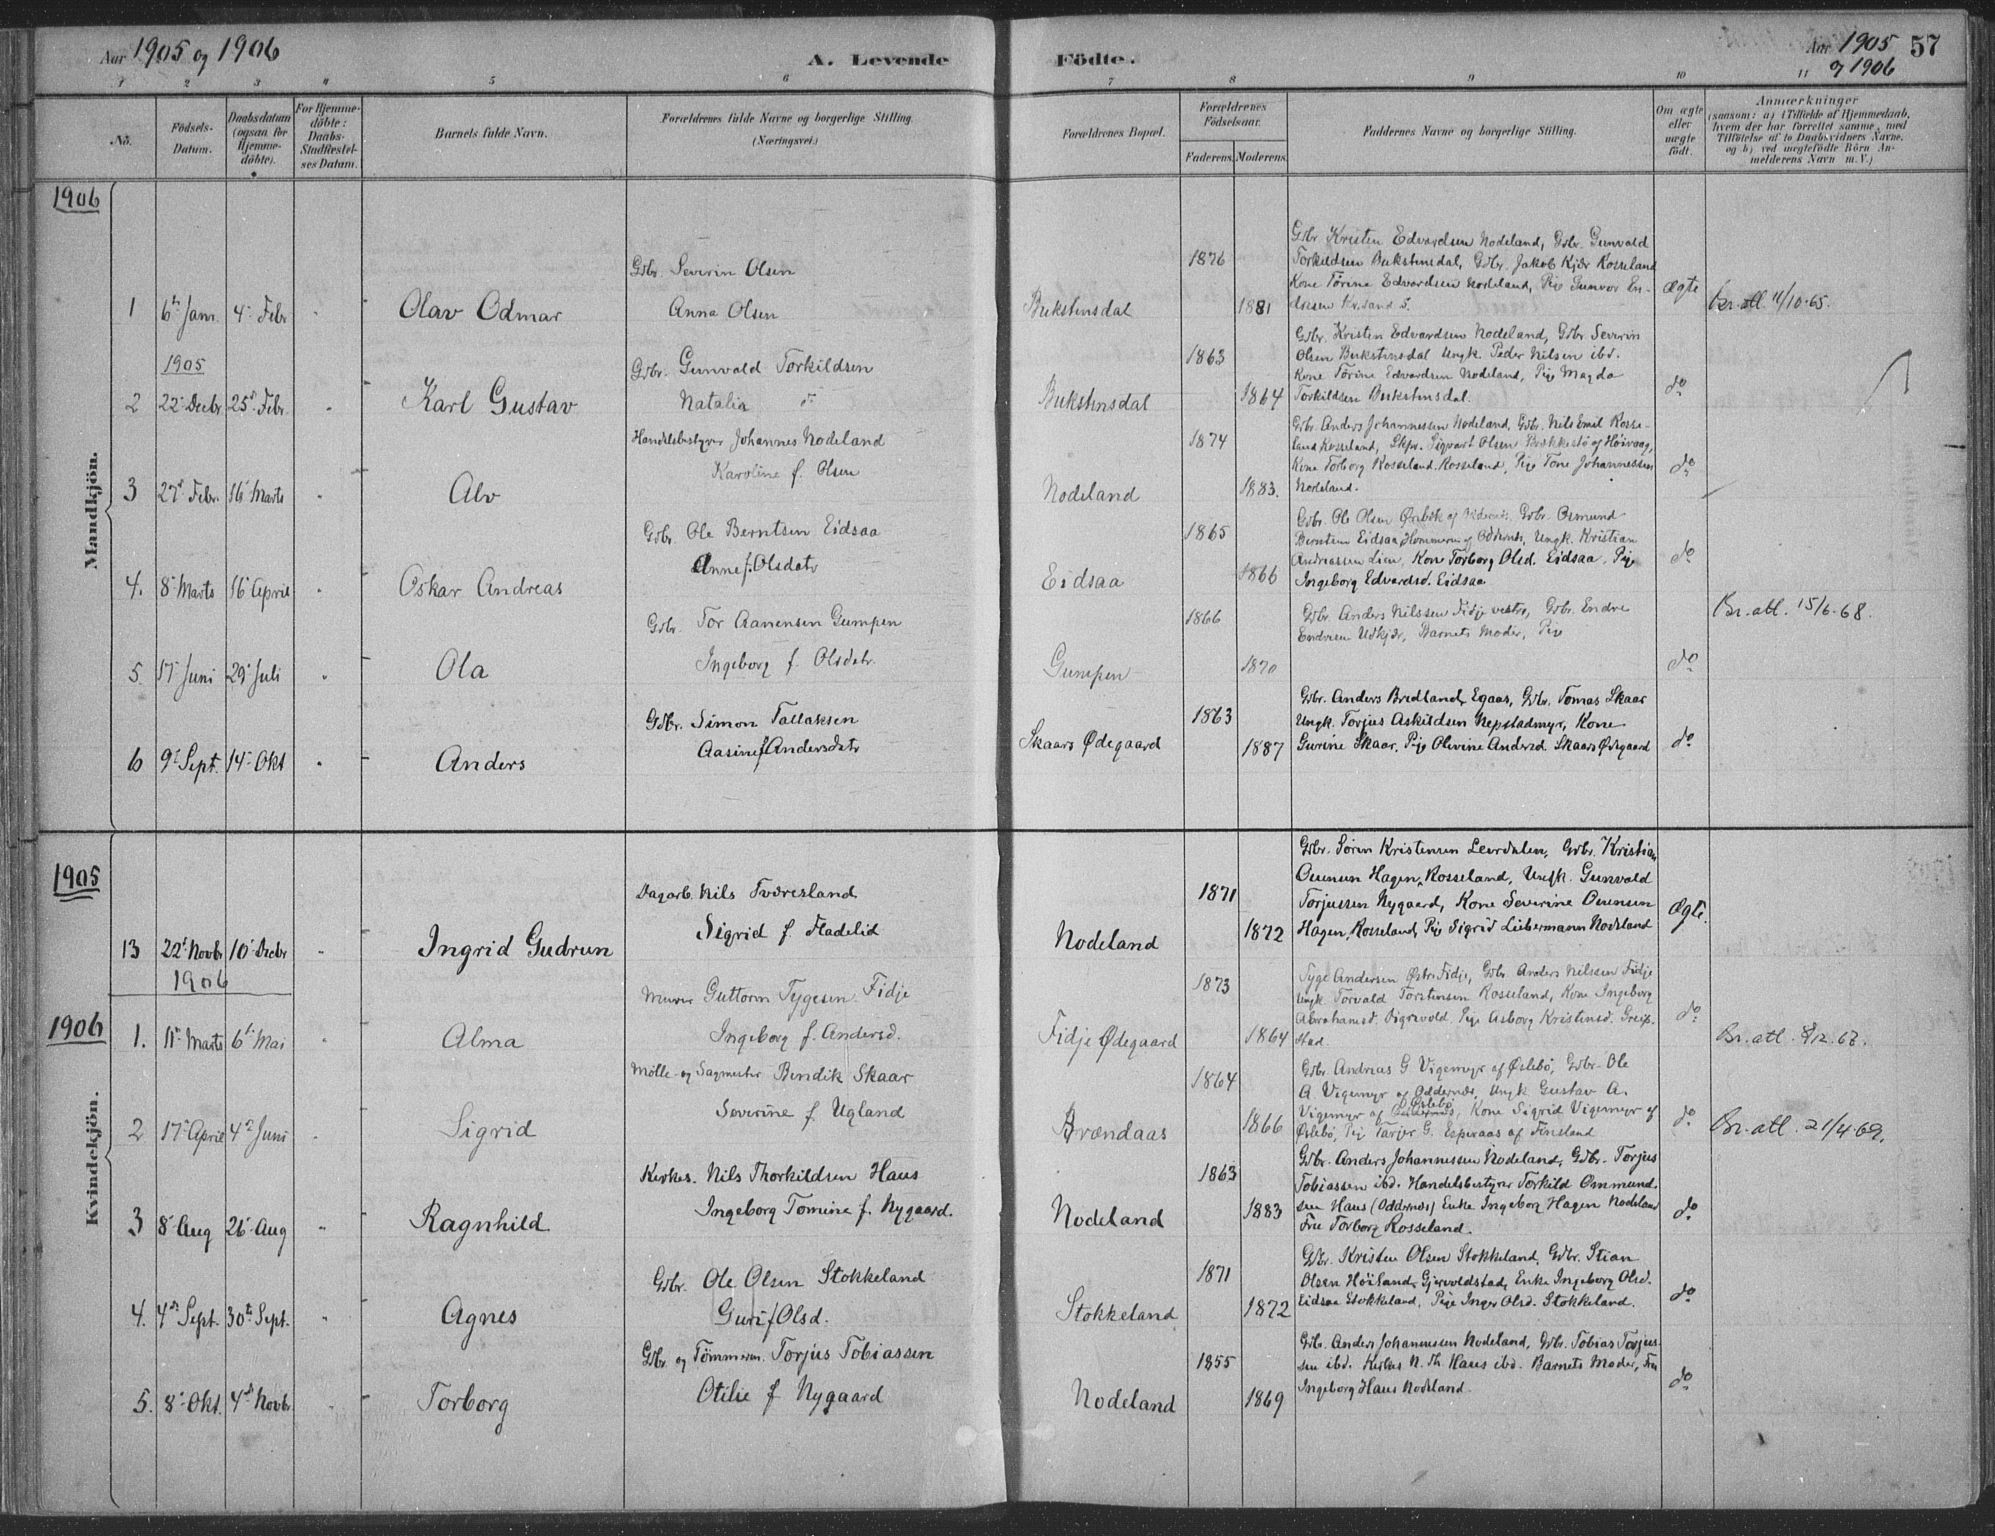 Aar 1905 og 1906
A. Levende Födte.
Aar 1905
og 1906
57
1 2 3 4 5 6 7 8 9 10 11
No.
Födsels-
Datum.
Daabsdatum
(ogsaa for
Hjemme-
döbte).
For Hjemme-
döbte:
Daabs-
Stadfæstel-
ses Datum.
Barnets fulde Navn.
Forældrenes fulde Navne og borgerlige Stilling.
(Næringsvei.)
Forældrenes Bopæl.
Forældrenes
Födselsaar.
Faderens. Moderens.
Faddernes Navne og borgerlige Stilling.
Om ægte
eller
uægte
født.
Anmærkninger
(saasom: a) i Tilfælde af Hjemmedaab,
hvem der har forrettet samme, med
Tilföielse af to Daabsvidners Navne,
og b) ved uægtefödte Börn An-
melderens Navn m. V.)
1906
Mandkjön.
1 6te Jan. 4de Febr. " Olav Odmar
Gbr. Severin Olsen
Anna Olsen
Bukstensdal
1876
1881
Gbr Kristen Edvardsen Nodeland, Gbr. Gunvald
Torkildsen Bukstensdal, Gbr. Jakob Kjær Rosseland
Kone Torine Edvardsen Nodeland, Pige Gunvor En-
dresen Kr.sand S.
Ægte
Br. att. 11/10-65.
1905
2 22de Decbr 25de Febr. " Karl Gustav
Gbr. Gunvald Torkildsen
Natalia do
Bukstensdal
1863
1864
Gbr. Kristen Edvardsen Nodeland, Gbr Severin
Olsen Bukstensdal Ungk. Peder Nilsen ibd.
Kone Torine Edvardsen Nodeland, Pige Magda
Torkildsen Bukstensdal.
do
3 27de Febr. 16de Marts " Alv
Handelsbestyrer Johannes Nodeland
Karoline f. Olsen
Nodeland
1874
1883.
Gbr. Anders Johannessen Nodeland, Gbr. Nils Emil Rosse-
land Rosseland, Skpr. Sigvart Olsen Brækkestø af Høivaag,
Kone Torborg Rosseland. Rosseland, Pige Tone Johannessen
Nodeland.
do
4. 8de Marts 16de April " Oskar Andreas
Gbr. Ole Berntsen Eidsaa
Anne f. Olsdatr
Eidsaa
1865
1866
Gbr. Ole Olsen Ørebæk af Oddernes, Gbr. Osmund
Berntsen Eidsaa, Hommeren af Oddernes, Ungk. Kristian
Andreassen Lien, Kone Torborg Olsd. Eidsaa. Pige
Ingeborg Edvardsd. Eidsaa
do
5. 17de Juni 29de Juli " Ola
Gbr. Tor Aanensen Gumpen
Ingeborg f. Olsdatr.
Gumpen
1866
1870
Gbr. Anders Nilssen Fidje vestre, Gbr. Endre
Endresen Udkjær, Barnets Moder, Pige
do
Br. att. 15/6-68.
6 9de Sept. 14de Okt " Anders
Gbr. Simon Tallaksen
Aasine f. Andersdatr
Skaars Ødegaard
1863
1887
Gbr. Anders Bredland, Egaas, Gbr. Tomas Skaar
Ungk. Torjus Askildsen Nepstadmyr, Kone
Gurine Skaar. Pige Olivine Andersd. Skaars Ødegaard
do
1905
Kvindekjön.
13 22de Novbr 10de Decbr " Ingrid Gudrun
Dagarb. Nils Tveresland
Sigrid f. Fladelid
Nodeland
1871
1872
Gbr. Sören Kristensen Leirdalen, Gbr. Kristian
Ounsen Hagen, Rosseland, Ungk. Gunvald
Torjussen Nygaard, Kone Severine Ounsen
Hagen, Rosseland, Pige Sigrid Liebermann Nodeland
Ægte.
1906
1906
1. 11te Marts 6te Mai " Alma
Murer Guttorm Tygesen Fidje
Ingeborg f. Andersd.
Fidje Ødegaard
1873
1864
Tyge Andersen Østre Fidje, Gbr. Anders Nilssen Fidje
Ungk. Torvald Torstensen Rosseland, Kone Ingeborg
Abrahamsd. Digrevold. Pige Asborg Kristensd. Greip-
stad.
do
Br. att. 8/12-62.
2 17de April 4de Juni Sigrid
Mölle- og Sagmester Bendik Skaar
Severine f. Ugland
Brændaas
1864
1866
Gbr Andreas G Vigemyr af Øslebö, Gbr. Ole
A. Vigemyr af Oddernes, Ungk Gustav A.
Vigemyr af Øslebö, Kone Sigrid Vigemyr af
Øslebö, Pige Tarjer G. Esperaas af Finsland
do
Br. att. 21/4-69.
3 8de Aug 26de Aug " Ragnhild
Kirkes. Nils Thorkildsen Haus
Ingeborg Tomine f. Nygaard.
Nodeland
1863
1883
Gbr. Anders Johannessen Nodeland, Gbr. Torjus
Tobiassen ibd. Handelsbestyrer Torkild Ommund-
sen Haus (Oddernes) Enke Ingeborg Hagen Nodeland
Fru Torborg Rosseland.
do
4. 4de Sept. 30te Sept. " Agnes
Gbr. Ole Olsen Stokkeland
Guri f. Olsd.
Stokkeland
1871
1872
Gbr. Kristen Olsen Stokkeland, Gbr. Stian
Olsen Høiland, Gjervoldstad, Enke Ingeborg Olsd.
Eidsaa Stokkeland, Pige Inger Olsd. Stokkeland.
do
5. 8de Okt. 4de Novbr Torborg
Gbr og Tömmerm. Torjus Tobiassen
Otilie f Nygaard
Nodeland
1855
1869
Gbr. Anders Johannessen Nodeland, Gbr. Tobias Torjus-
sen ibd. Kirkes N. Th. Haus ibd. Barnets Moder, Fru
Ingeborg Haus Nodeland.
do